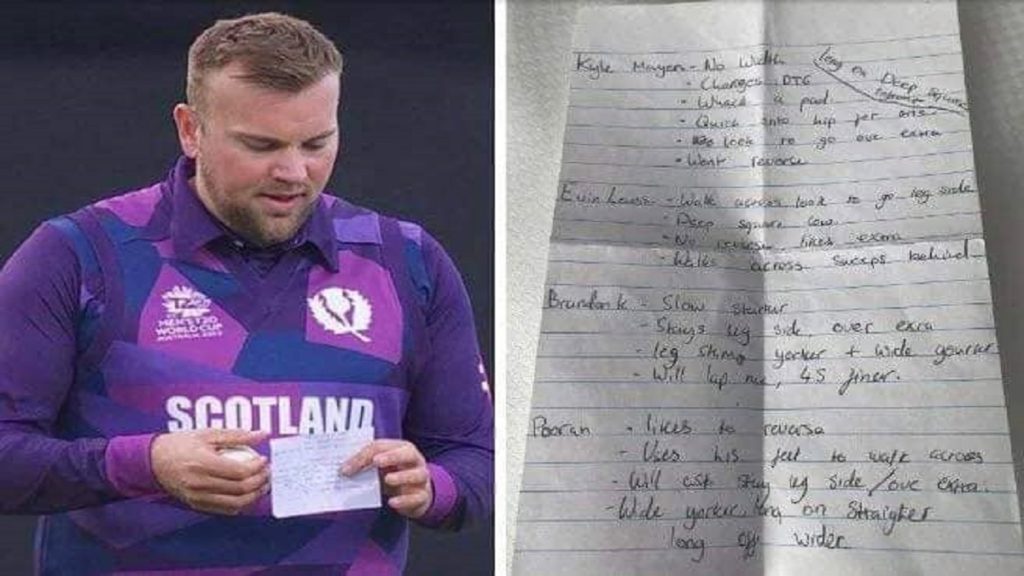 T20
MEN'S T20
WORLD CUP
AUSTRALIA 2022
SCOTLAND
Kyle Mayers - No Width
- Changes DTG
- Whack a pad.
- Quick into hip for
- look to go over extra
- Wont reverse
long on Deep Square
Evin Lewis - Walk across look to go leg side
- Deep square
- No reverse likes extra
- Walks across Sweeps behind
Brandon k - Slow starter
- Stays leg side over extra
- leg stump yorker + wide yourker
- Will lap me, 45 finer.
Pooran - likes to reverse
- Uses his feet to walk across
- Will stay leg side / over extra.
- Wide yorker long on Straighter
long off wider